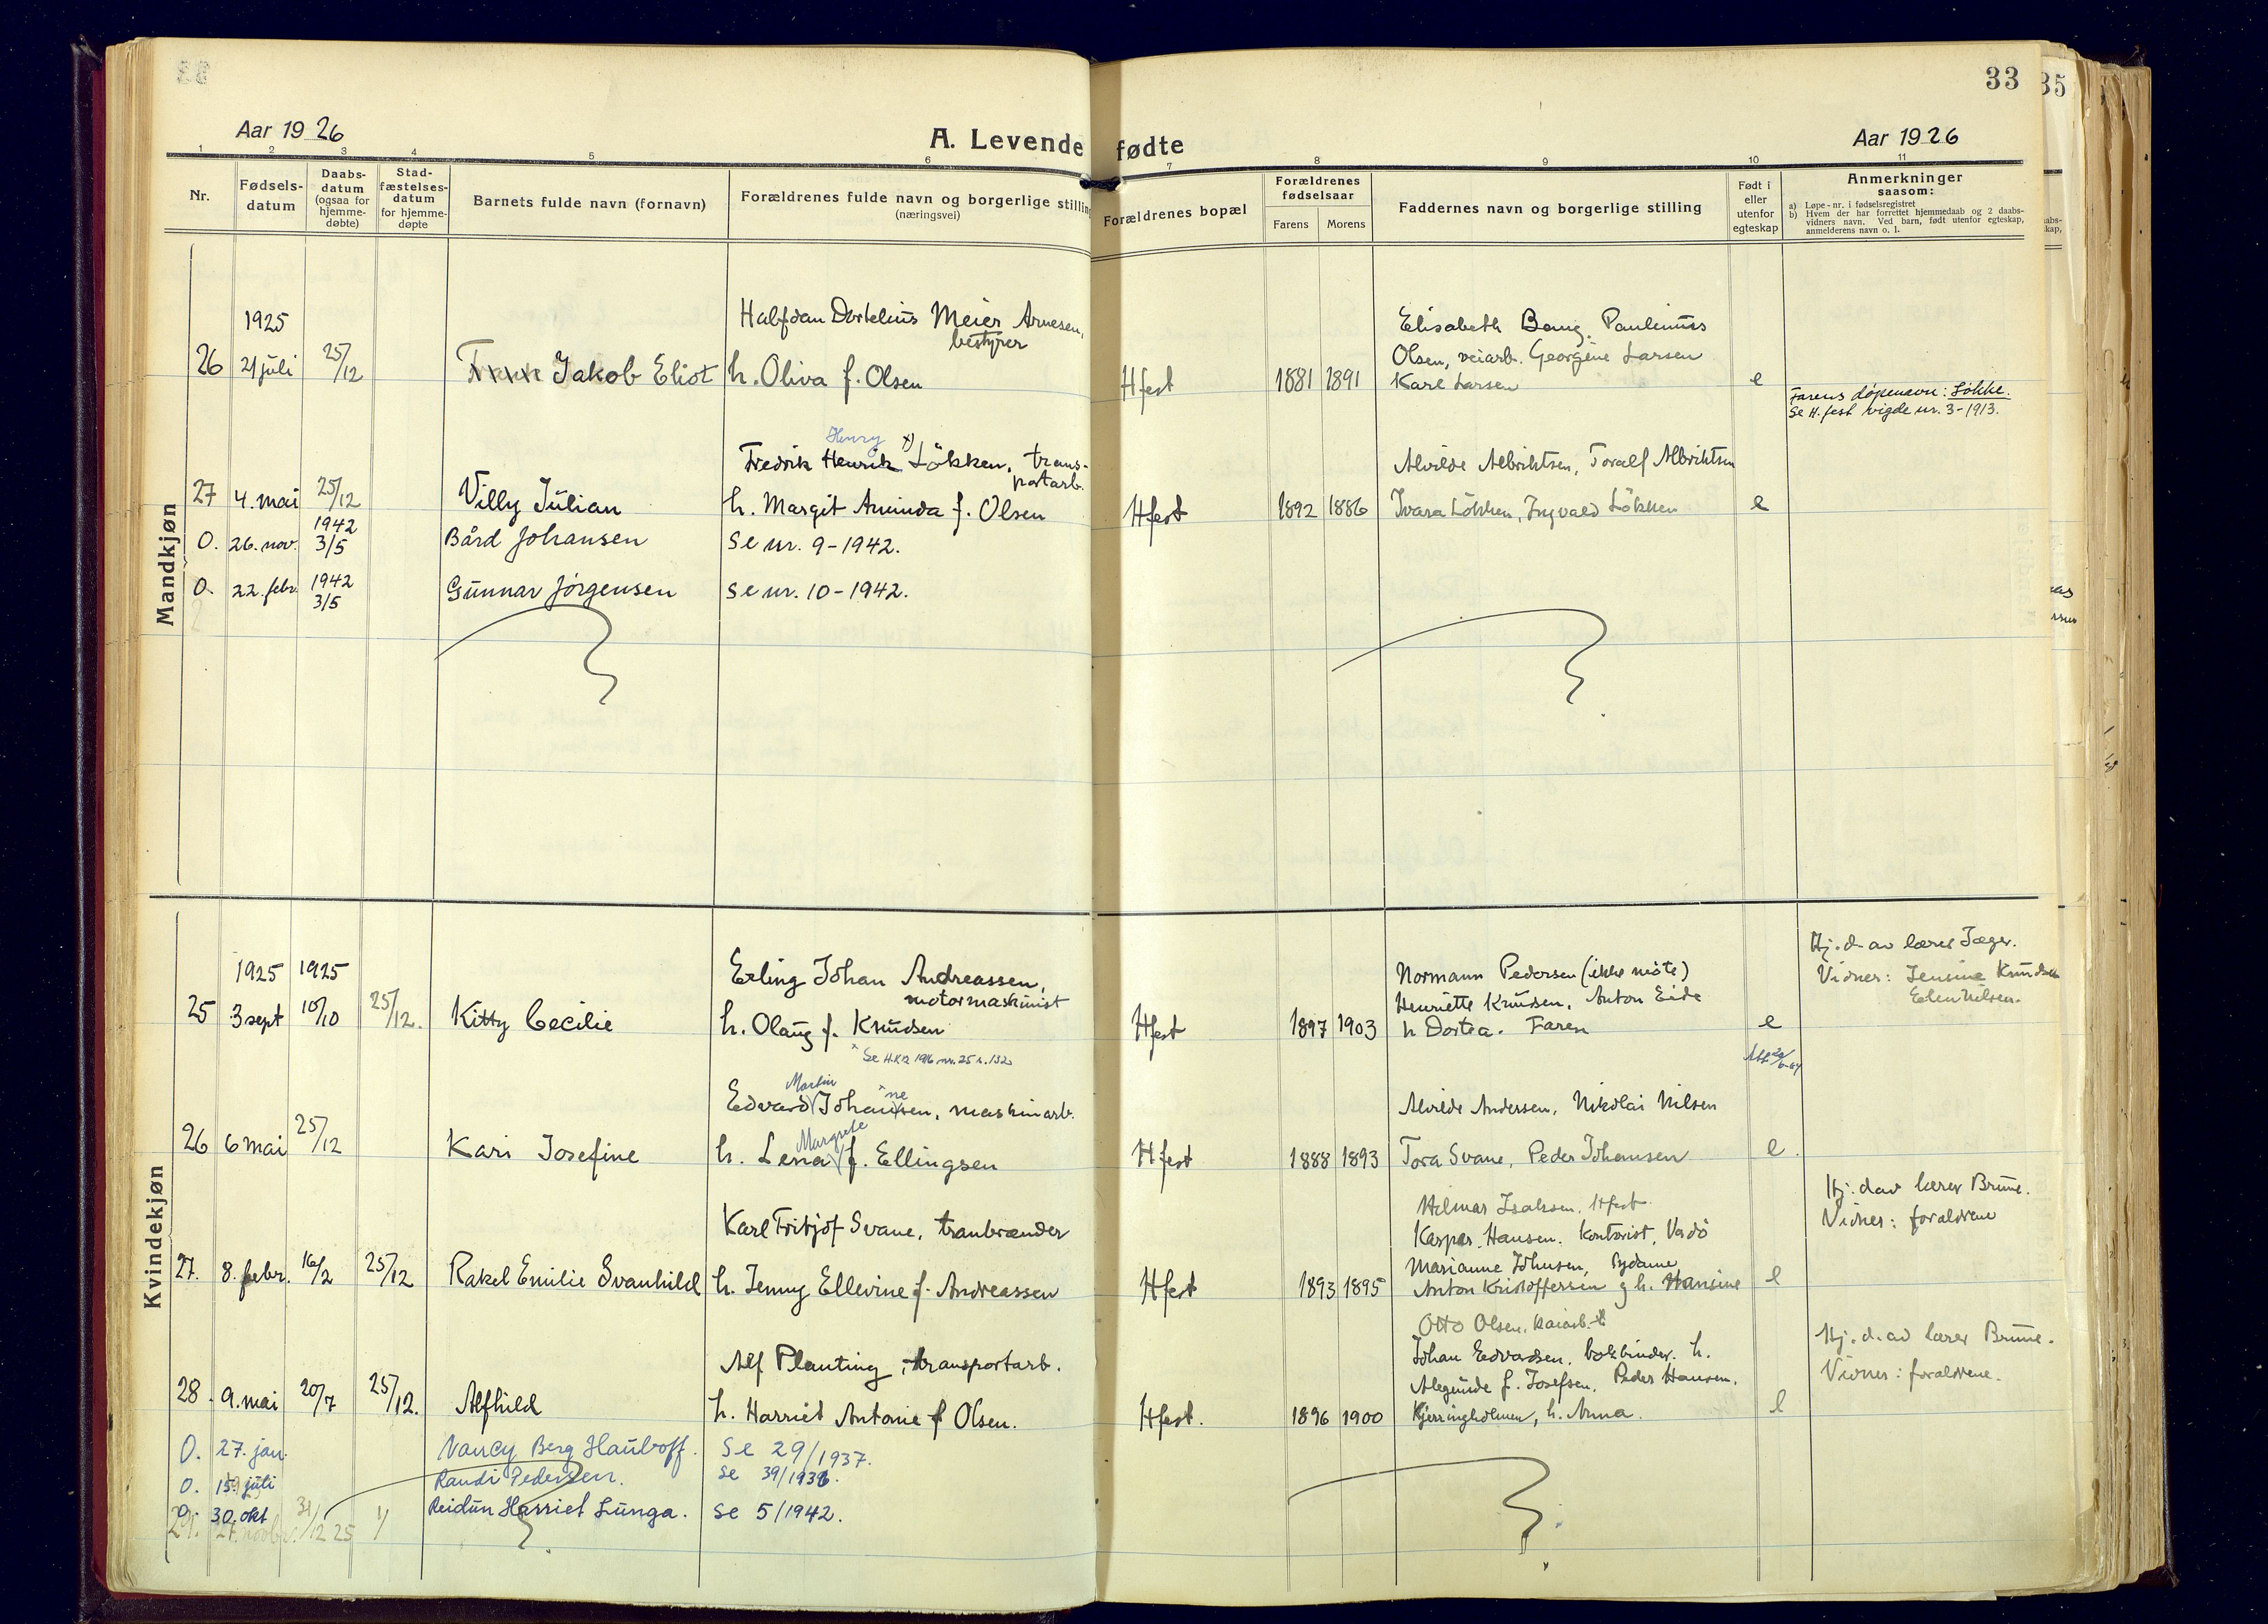 33
Aar 1926
A. Levende fødte
Aar 1926
33
35
1 2 3 4 5 6 7 8 9 10 11
Nr.
Fødsels-
datum
Daabs-
datum
(ogsaa for
hjemme-
døbte)
Stad-
fæstelses-
datum
for hjemme-
døpte
Barnets fulde navn (fornavn)
Forældrenes fulde navn og borgerlige stilling
(næringsvei)
Forældrenes bopæl
Forældrenes
fødselsaar
Farens Morens
Faddernes navn og borgerlige stilling
Født i
eller
utenfor
egteskap
Anmerkninger
saasom:
a) Løpe-nr. i fødselsregistret
b) Hvem der har forrettet hjemmedaab og 2 daabs-
vidners navn. Ved barn, født utenfor egteskap,
anmelderens navn o. l.
Mandkjøn
1925
26 21 juli 25/12 Jakob Eliot
Halfdan Meier Arnesen,
bestyrer
h. Oliva f. Olsen
Hfest 1881 1891
Elisabeth Bang, Paulinius
Olsen, veiarb. Georgine Larsen
Karl Larsen
e
Farens døpenavn: Løkke.
Se H.fest vigde nr. 3-1913.
27 4. mai 25/12 Villy Julian
Henry x)
Fredrik Henrik Løkken, trans-
portarb.
h. Margit Aminda f. Olsen
Hfest 1892 1886
Alvilde Albriktsen, Toralf Albriktsen
Ivara Løkken, Ingvald Løkken
e
O. 26. nov. 1942 3/5 Bård Johansen Se nr. 9-1942.
O. 22. febr. 1942 3/5 Gunnar Jørgensen Se nr. 10-1942.
Kvindekjøn
1925 1925
25 3 sept 10/10 25/12. Kitty Cecilie
Erling Johan Andreassen,
motormaskinist
h. Olaug f. Knudsen
Hfest 1897 1903
Normann Pedersen (ikke møte)
Henriette Knudsen, Anton Eide
h Dortea. Faren
e
Hj.d. av lærer Jæger.
Vidner: Jensine Knudsen
Elen Nilsen.
26 6 mai 25/12 Kari Josefine
Martin ne
Edvard Johansen, maskinarb.
Margrete
h. Lena f. Ellingsen
Hfest 1888 1893
Alvilde Andersen, Nikolai Nilsen
Tora Svane, Peder Johansen
e
27. 8. febr. 16/2 25/12 Rakel Emilie Svanhild
Karl Fritjof Svane, tranbrænder
h. Jenny Ellevine f. Andreassen
Hfest 1893 1895
Hilmar Isaksen, Hfest
Kaspar Hansen. Kontorist, Vadsö
Marianne Johnsen,
Anton Kristoffersen g h. Hansine
e
Hj. d av lærer Brune.
Vidner: forældrene
28. 9. mai 20/7 25/12. Alfhild
Alf Planting, transportarb.
h. Harriet Antonie f Olsen.
Hfest. 1896 1900
Otto Olsen, kaiarb.
Johan Edvardsen, bokbinder. h.
Alegunde f. Josefsen, Peder Hansen,
Kjerringholmen, h. Anna.
e
Hj. d. av lærer Brune.
Vidner: forældrene.
O. 27. jan. Nancy Berg Hauboff. Se 29/1937.
O. 15. juli Randi Pedersen. Se 39/1936.
O. 30. okt Reidun Harriet Lunga. Se 5/1942.